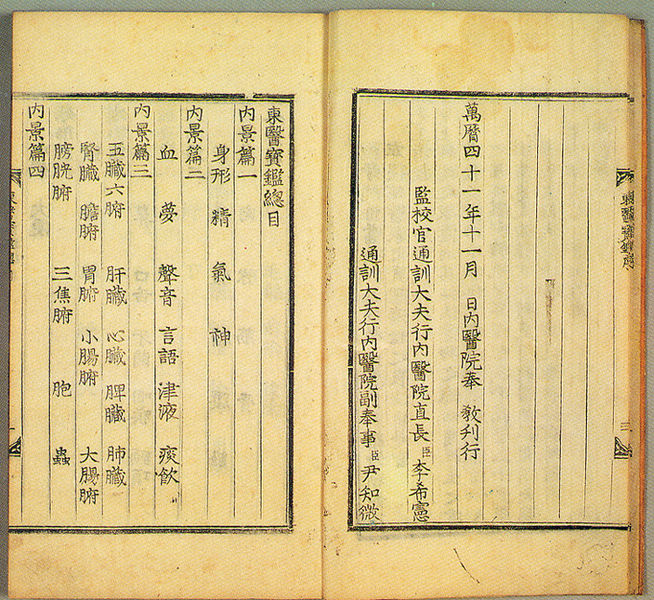 東醫寶鑑序
三
萬曆四十一年十一月 日內醫院奉 敎刊行
監校官通訓大夫行內醫院直長臣李希憲
通訓大夫行內醫院副奉事臣尹知微
東醫寶鑑總目
內景篇一
身形 精 氣 神
內景篇二
血 夢 聲音 言語 津液 痰飮
內景篇三
五臟六腑 肝臟 心臟 脾臟 肺臟
腎臟 膽腑 胃腑 小腸腑 大腸腑
膀胱腑 三焦腑 胞 蟲
內景篇四